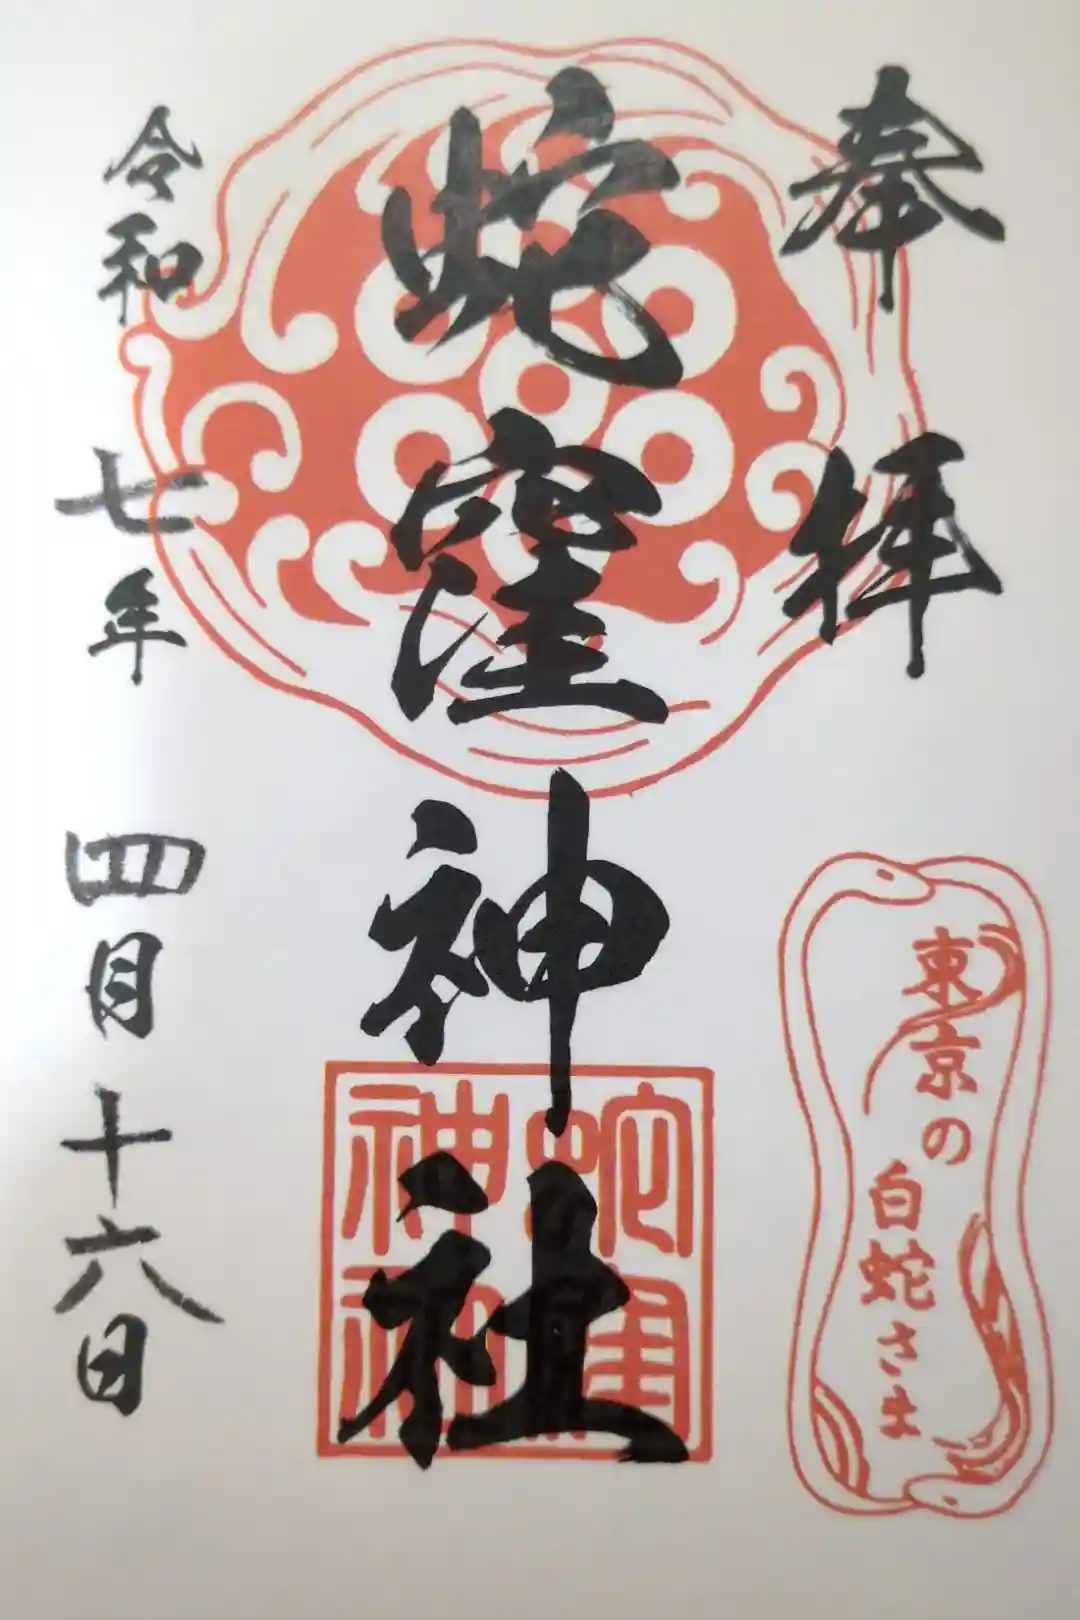 奉拝
東京の
白蛇さま
蛇窪神社
令和七年四月十六日